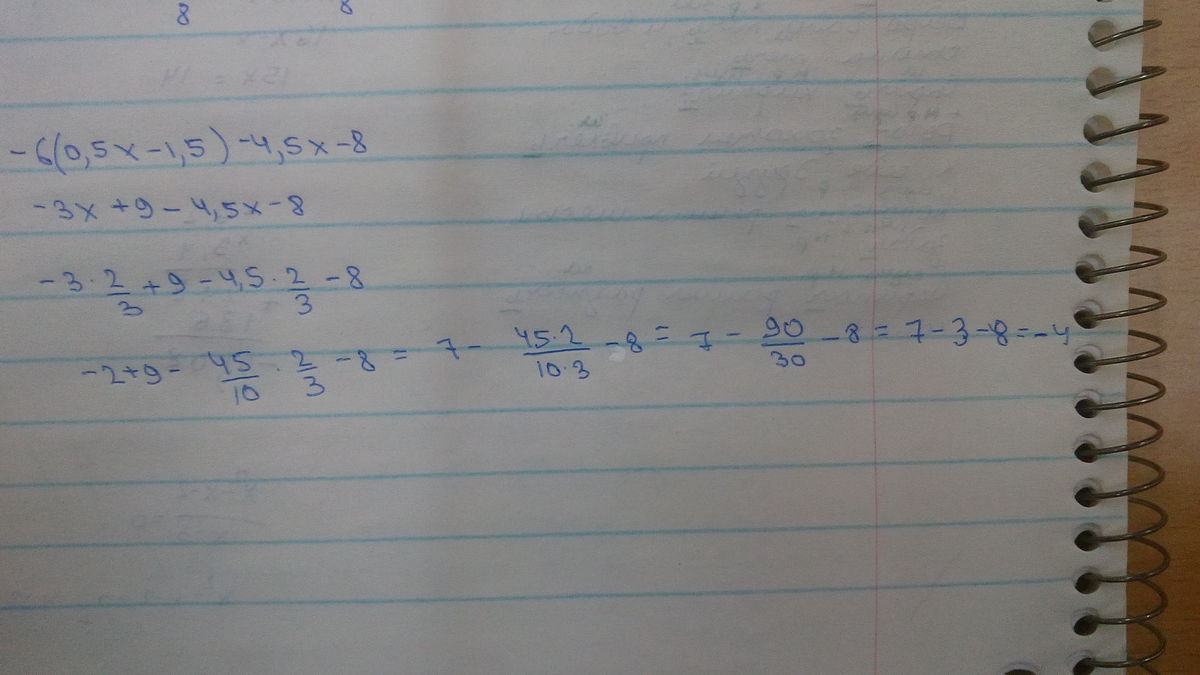 8 8
-6(0,5x-1,5)-4,5x-8
-3x+9-4,5x-8
-3·2/3+9-4,5·2/3-8
-2+9-45/10·2/3-8=7-45·2/10·3-8=7-90/30-8=7-3-8=-4